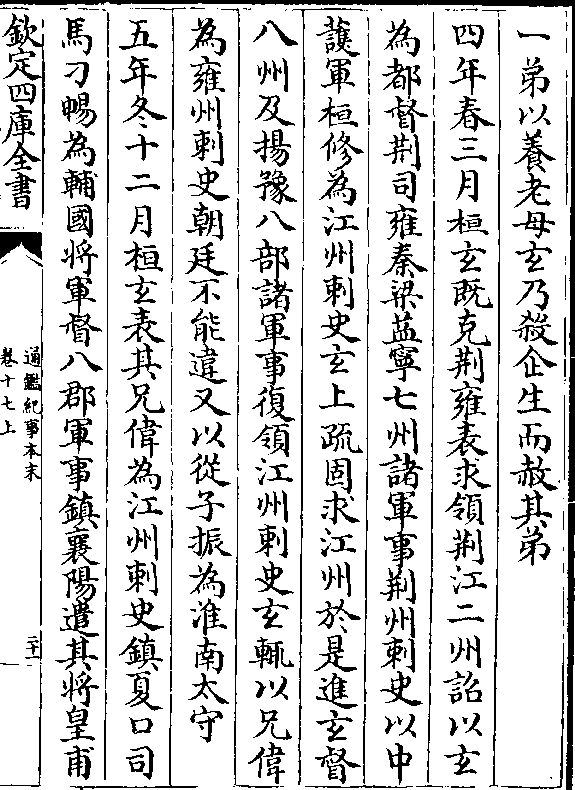 一弟以養老母玄乃殺企生而赦其弟
四年春三月桓玄既克荆雍表求領荆江二州詔以玄
為都督荆司雍秦梁益寧七州諸軍事荆州刺史以中
䕶軍桓修為江州刺史玄上疏固求江州於是進玄督
八州及揚豫八部諸軍事復領江州刺史玄輒以兄偉
為雍州刺史朝廷不能違又以從子振為淮南太守
五年冬十二月桓玄表其兄偉為江州刺史鎮夏口司
馬刁暢為輔國將軍督八郡軍事鎮襄陽遣其將皇甫
欽定四庫全書
通鑑紀事本末
卷十七上
二十一